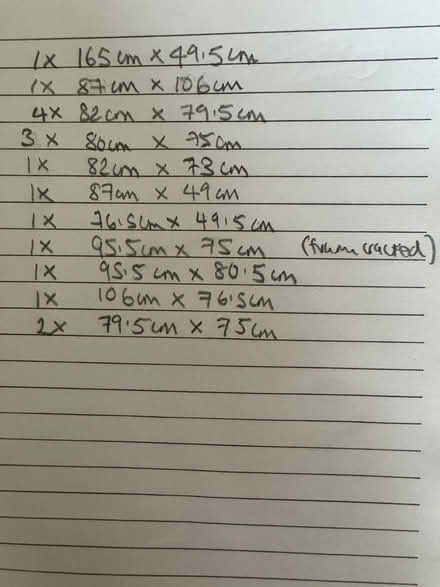 1x 165cm x 49.5cm
1x 87cm x 106cm
4x 82cm x 79.5cm
3 x 80cm x 75cm
1x 82cm x 73cm
1x 87cm x 49cm
1x 76.5cm x 49.5cm
1x 95.5cm x 75cm (frame cracked)
1x 95.5cm x 80.5cm
1x 106cm x 76.5cm
2x 79.5cm x 75cm